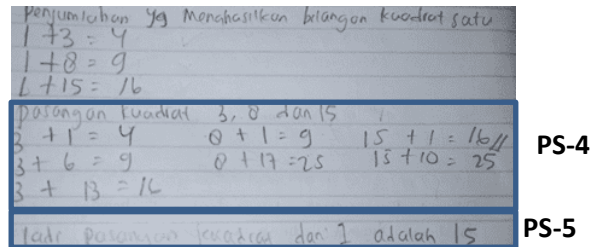 Penjumlahan yg Menghasilkan bilangan kuadrat satu
1 + 3 = 4
1 + 8 = 9
1 + 15 = 16
Pasangan kuadrat 3, 8 dan 15
3 + 1 = 4 8 + 1 = 9 15 + 1 = 16 //
3 + 6 = 9 8 + 17 = 25 15 + 10 = 25
3 + 13 = 16
PS-4
Jadi pasangan kuadrat dari 1 adalah 15
PS-5